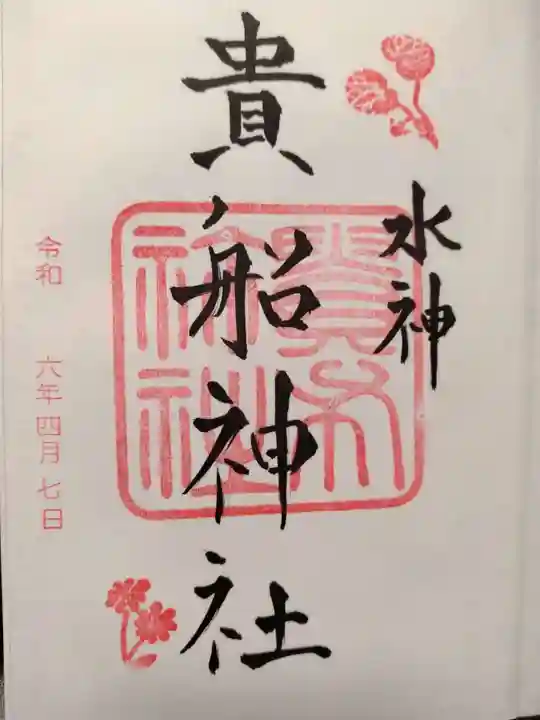 水神
貴船神社
令和 六年四月七日